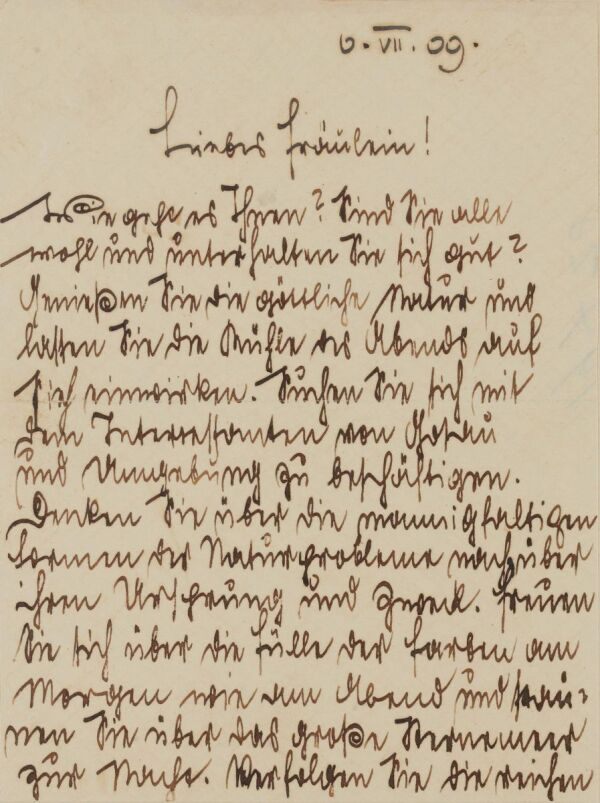 6. VII. 09.
Liebes Fräulein!
Wie geht es Ihnen? Sind Sie alle
wohl und unterhalten Sie sich gut?
Genießen Sie die göttliche Natur und
lassen Sie die Kühle des Abends auf
sich einwirken. Suchen Sie sich mit
dem Interessanten von Gosau
und Umgebung zu beschäftigen.
Denken Sie über die mannigfaltigen
Formen der Naturprobleme nach, über
ihren Ursprung und Zweck. Freuen
Sie sich über die Fülle der Farben am
Morgen wie am Abend und stau-
nen Sie über das große Sternemeer
zur Nacht. Verfolgen Sie die reichen